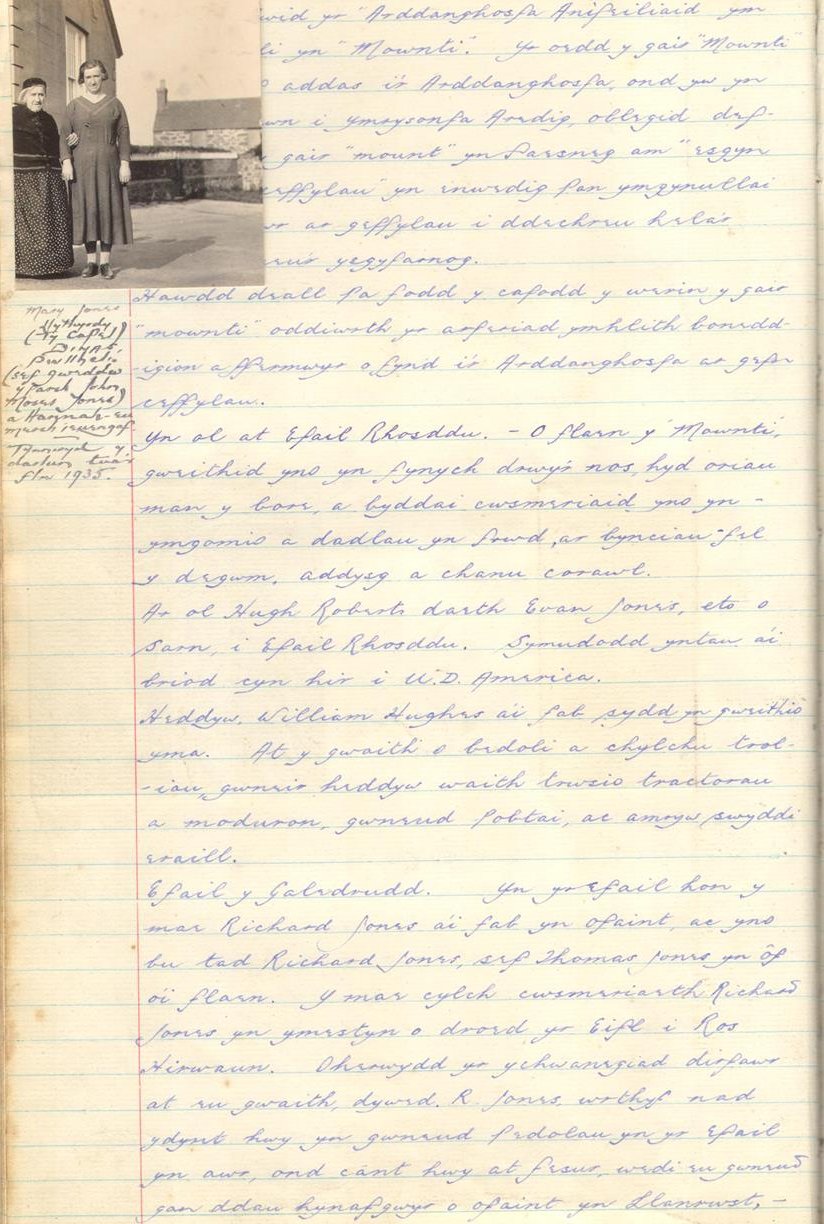 yr "Arddanghosfa Anifeiliaid ym
yn "Mownti". Yr oedd y gair "Mownti"
addas i'r Arddanghosfa, ond yw yn
i ymrysonfa Aredig, oblegid def-
gair "mount" yn Saesneg am "esgyn
ceffylau" yn enwedig pan ymgynullai
ar geffylau i ddechreu hela'r
ysgyfarnog.
Hawdd deall pa fodd y cafodd y werin y gair
"mownti" oddiwrth yr arferiad ymhlith bonedd-
-igion a ffermwyr o fynd i'r Arddanghosfa ar gefn
ceffylau.
Yn ol at Efail Rhosddu. - O flaen y 'Mownti',
gweithid yno yn fynych drwy'r nos, hyd oriau
man y bore, a byddai cwsmeriaid yno yn -
ymgomio a dadlau yn frwd, ar bynciau fel
y degwm, addysg a chanu corawl.
Ar ol Hugh Roberts daeth Evan Jones, eto o
Sarn, i Efail Rhosddu. Symudodd yntau a'i
briod cyn hir i U.D. America.
Heddyw, William Hughes a'i fab sydd yn gweithio
yma. At y gwaith o bedoli a chylchu trol-
-iau, gwneir heddyw waith trwsio tractorau
a moduron, gwneud pobtai, ac amryw swyddi
eraill.
Efail y Galedrudd. Yn yr efail hon y
mae Richard Jones a'i fab yn ofaint, ac yno
bu tad Richard Jones, sef Thomas Jones yn ôf
o'i flaen. Y mae cylch cwsmeriaeth Richard
Jones yn ymestyn o droed yr Eifl i Ros
Hirwaun. Oherwydd yr ychwanegiad dirfawr
at eu gwaith, dywed R. Jones, wrthyf nad
ydynt hwy yn gwneud pedolau yn yr Efail
yn awr, ond cânt hwy at fesur, wedi eu gwneud
gan ddau hynafgwyr o ofaint yn Llanrwst, -
Mary Jones
(Ty Capel)
Dinas
Pwllheli
(sef gweddw
y Parch John
Moses Jones)
a Hannah - eu
merch ieuengaf.
Tynnwyd y
darlun tua'r
fln 1935.